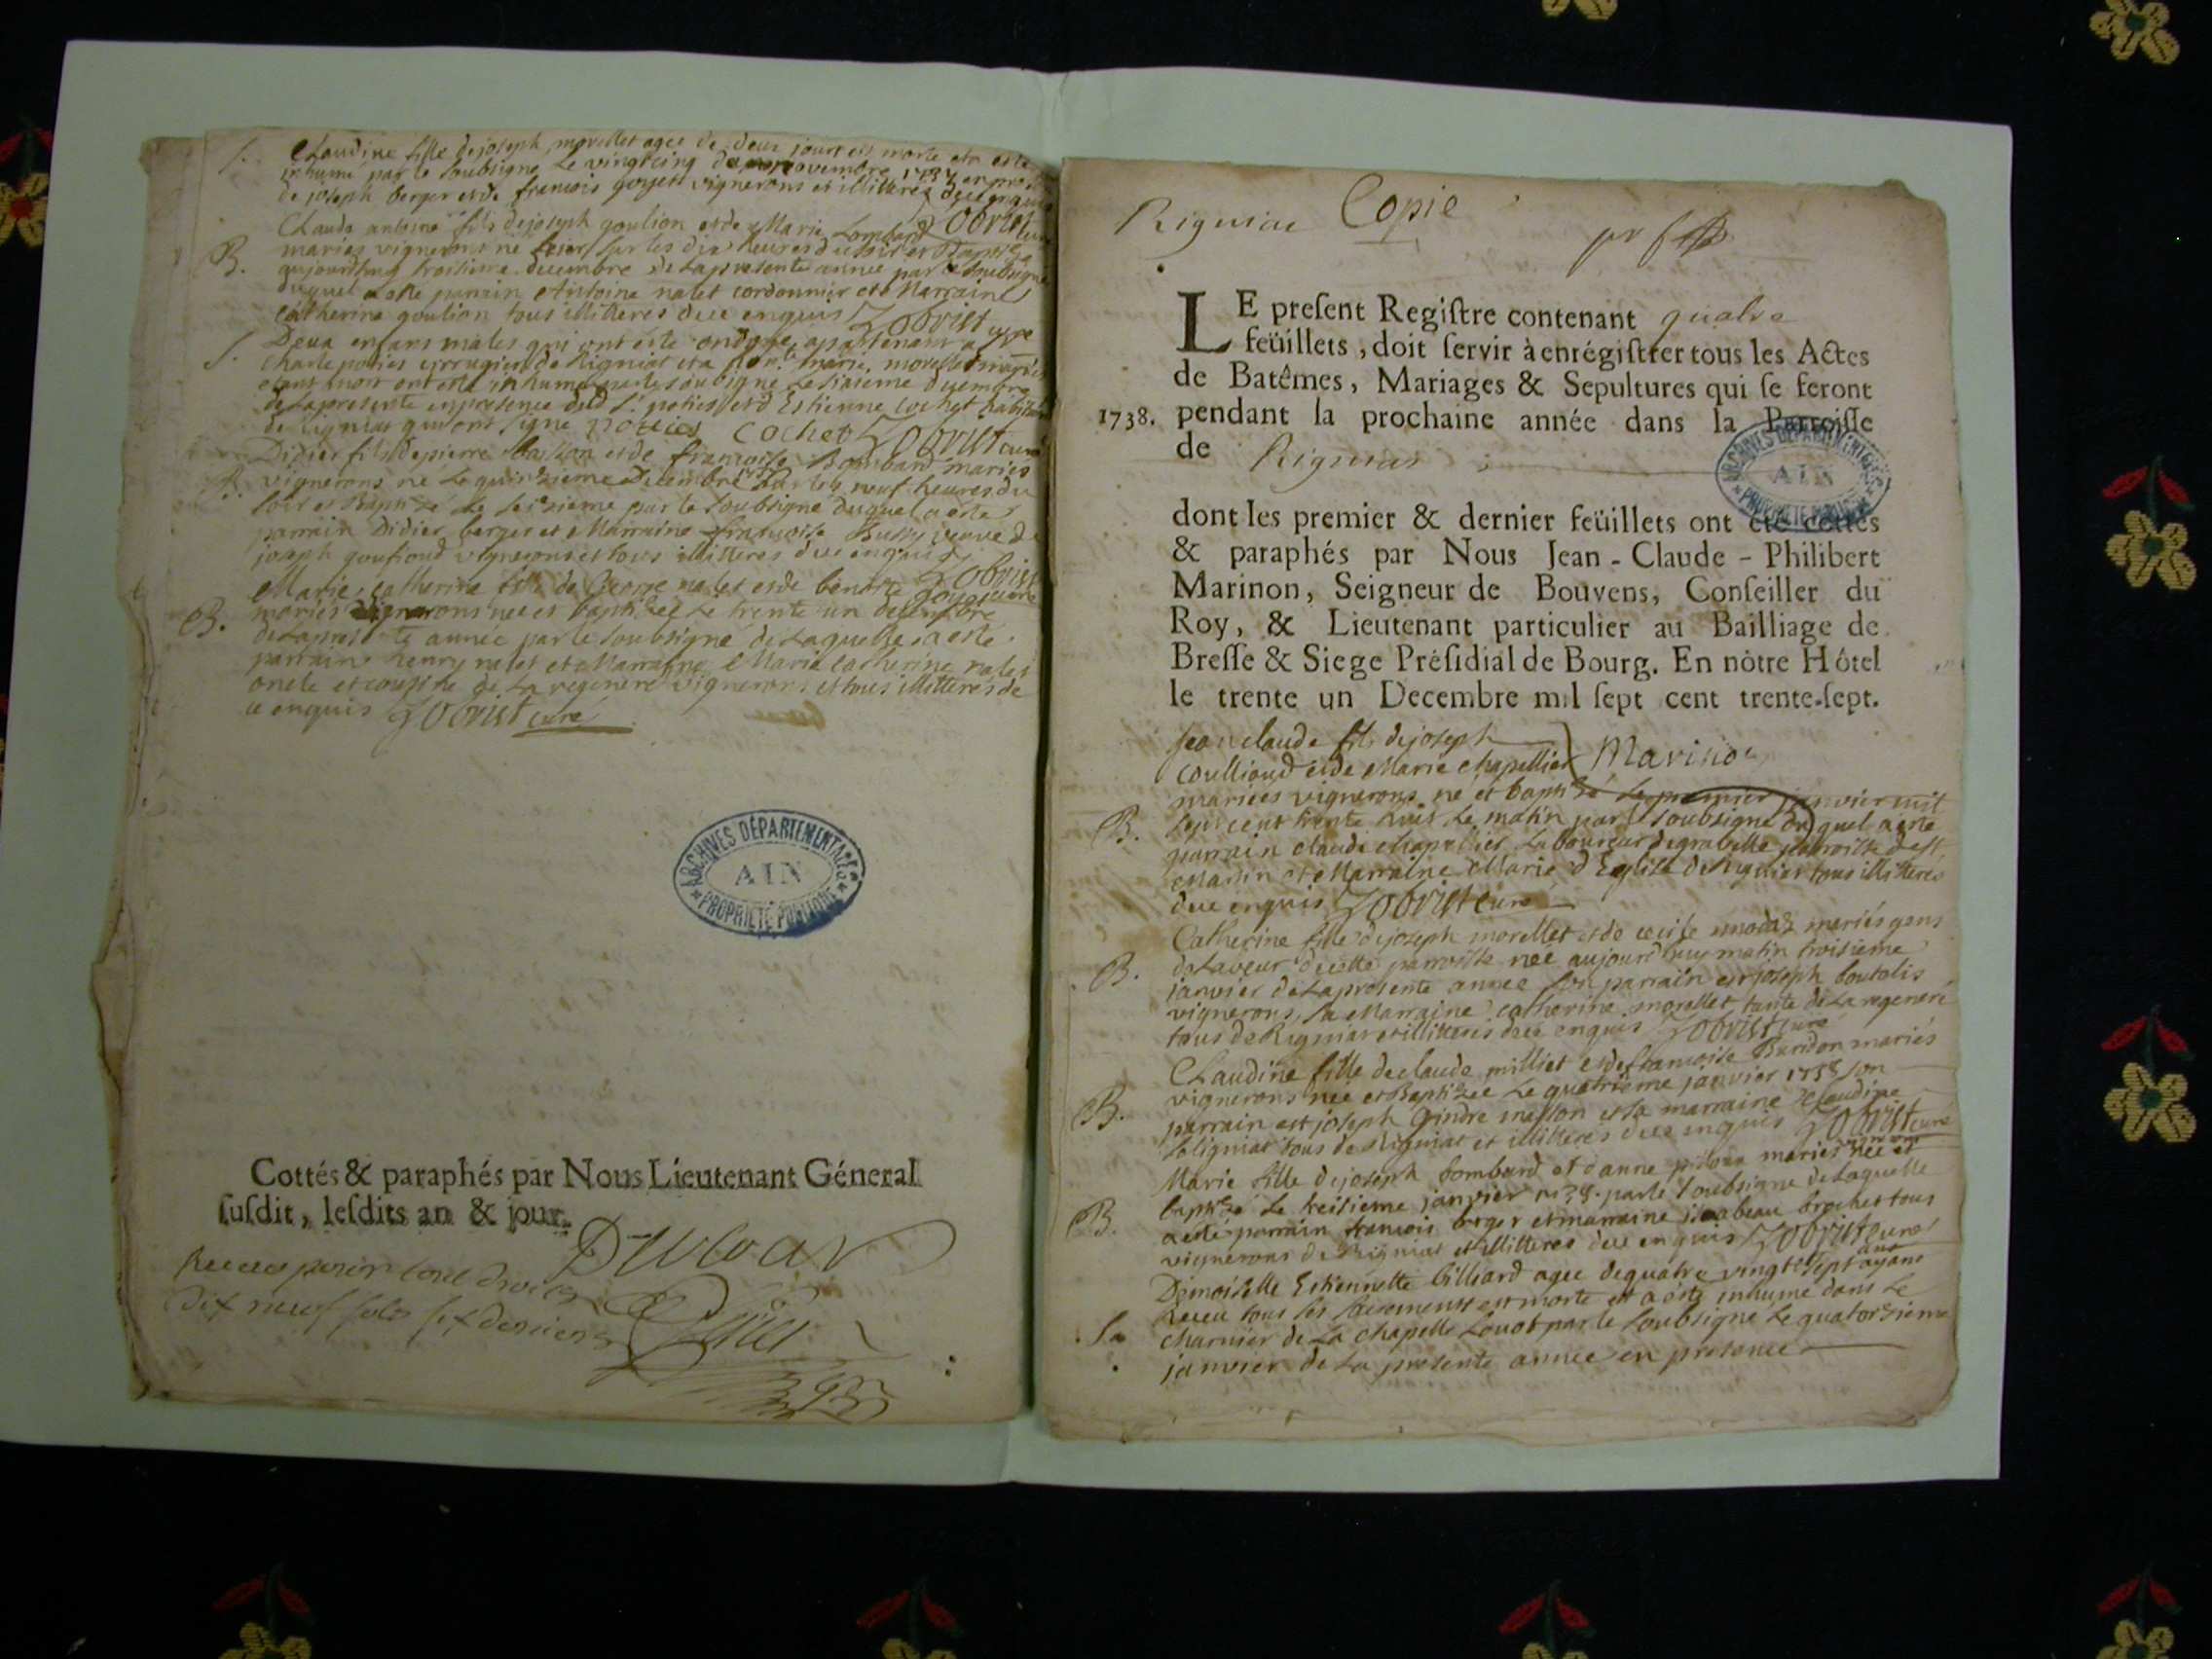 S. Claudine fille de joseph morellet agee de deux jours est morte et a esté
inhumé par le soubsigné Le vingtcinq de novembre 1737 en pre
de joseph berger et de francois goyet vignerons et illitteres de ce enquis
Jobvist curé
Claude antoine fils de joseph goulion et de Marie Lombard
B. mariés vignerons né hier sur les dix heures du soir et Baptisé
aujourdhuy troisieme decembre de la presente année par le soubsigné
duquel a esté parrain Antoine nalet cordonnier et Marraine
Catherine goulion tous illitteres de ce enquis Jobvist curé
S. Deux enfans males qui ont esté ondoyé appartenant a
charle poties chirugien de Rigniat et a marie morellet mariés
etant mort ont esté inhumé par le soubsigné Le sixieme decembre
de la presente en presence dud Sr. poties et d Estienne cochet habitant
de Rigniat qui ont signé potties Cochet Jobvist curé
Didier fils de pierre et de francoise Bombard mariés
B. vignerons né Le quinzieme decembre 1737 sur les neuf heures du
soir et Baptizé Le seizieme par le soubsigné duquel a esté
parrain Didier berger et Marraine francoise Bussy veuve de
joseph goufioud vignerons et tous illitteres de ce enquis
Jobvist curé
Marie catherine fille de George nalet et de benoite goyet
B. mariés vignerons née et baptizée Le trente un decembre
de la presente année par le soubsigné de Laquelle a esté
parrain henry nalet et Marraine Marie catherine nalet
oncle et cousine de La regeneré vignerons et tous illitteres de
ce enquis Jobvist curé
ARCHIVES DÉPARTEMENTALES
AIN
PROPRIÉTÉ PUBLIQUE
Cottés & paraphés par Nous Lieutenant Géneral
susdit, lesdits an & jour.
Receu pour tous droits
Dix neuf sols six deniers
Rigniat Copie
LE present Registre contenant quatre
feüillets, doit servir à enrégistrer tous les Actes
de Batêmes, Mariages & Sepultures qui se feront
1738. pendant la prochaine année dans la Parroisse
de Rigniat
ARCHIVES DÉPARTEMENTALES
AIN
PROPRIÉTÉ PUBLIQUE
dont les premier & dernier feüillets ont été cottés
& paraphés par Nous Jean-Claude-Philibert
Marinon, Seigneur de Bouvens, Conseiller du
Roy, & Lieutenant particulier au Bailliage de
Bresse & Siege Présidial de Bourg. En nôtre Hôtel
le trente un Decembre mil sept cent trente-sept.
Jean claude fils de joseph Marinon
coullioud et de Marie chapellier
mariées vignerons né et baptizé Le premier janvier mil
B. sept cent trente huit Le matin par le soubsigné duquel a esté
parrain claude chapellier Laboureur de grabelle parroisse de st
Martin et Marraine Marie d Eglise de Rigniat tous illitteres
de ce enquis Jobvist curé
Catherine fille de joseph morellet et de mariés gens
B. de Laveur de cette parroisse née aujourdhuy matin troisieme
janvier de La presente année son parrain est joseph boutalis
vignerons, sa Marraine catherine morellet tante de La regeneré
tous de Rigniat et illitteres de ce enquis Jobvist curé
Claudine fille de claude milliet et de francoise Buridon mariés
B. vignerons née et Baptizée Le quatrieme janvier 1738 son
parrain est joseph Gindre masson et sa marraine Claudine
Soligniat tous de Rigniat et illitteres de ce enquis Jobvist curé
Marie fille de joseph bombard et d anne mariés vignerons née et
B. baptizé Le treisieme janvier 1738. par le soubsigné de Laquelle
a été parrain francois berger et marraine isabeau brochet tous
vignerons de Rigniat et illitteres de ce enquis Jobvist curé
Demoiselle Estiennette billiard agee de quatre vingt sept ans ayant
receu tous les sacrements est morte et a esté inhumé dans Le
S. charnier de La chapelle par le soubsigné Le quatorzieme
janvier de La presente année en presence